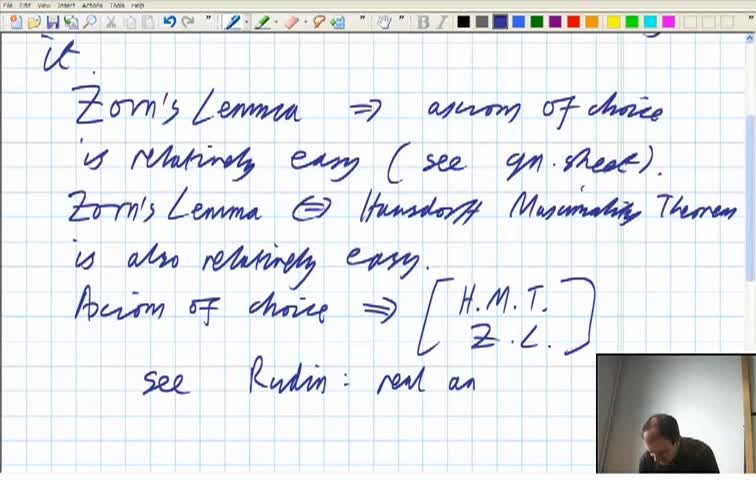 File Edit View Insert Actions Tools Help
it.
Zorn's Lemma ⇒ axiom of choice
is relatively easy (see qn. sheet).
Zorn's Lemma ⇔ Hausdorff Maximality Theorem
is also relatively easy.
Axiom of choice ⇒ [ H.M.T.
Z.L. ]
see Rudin: real an